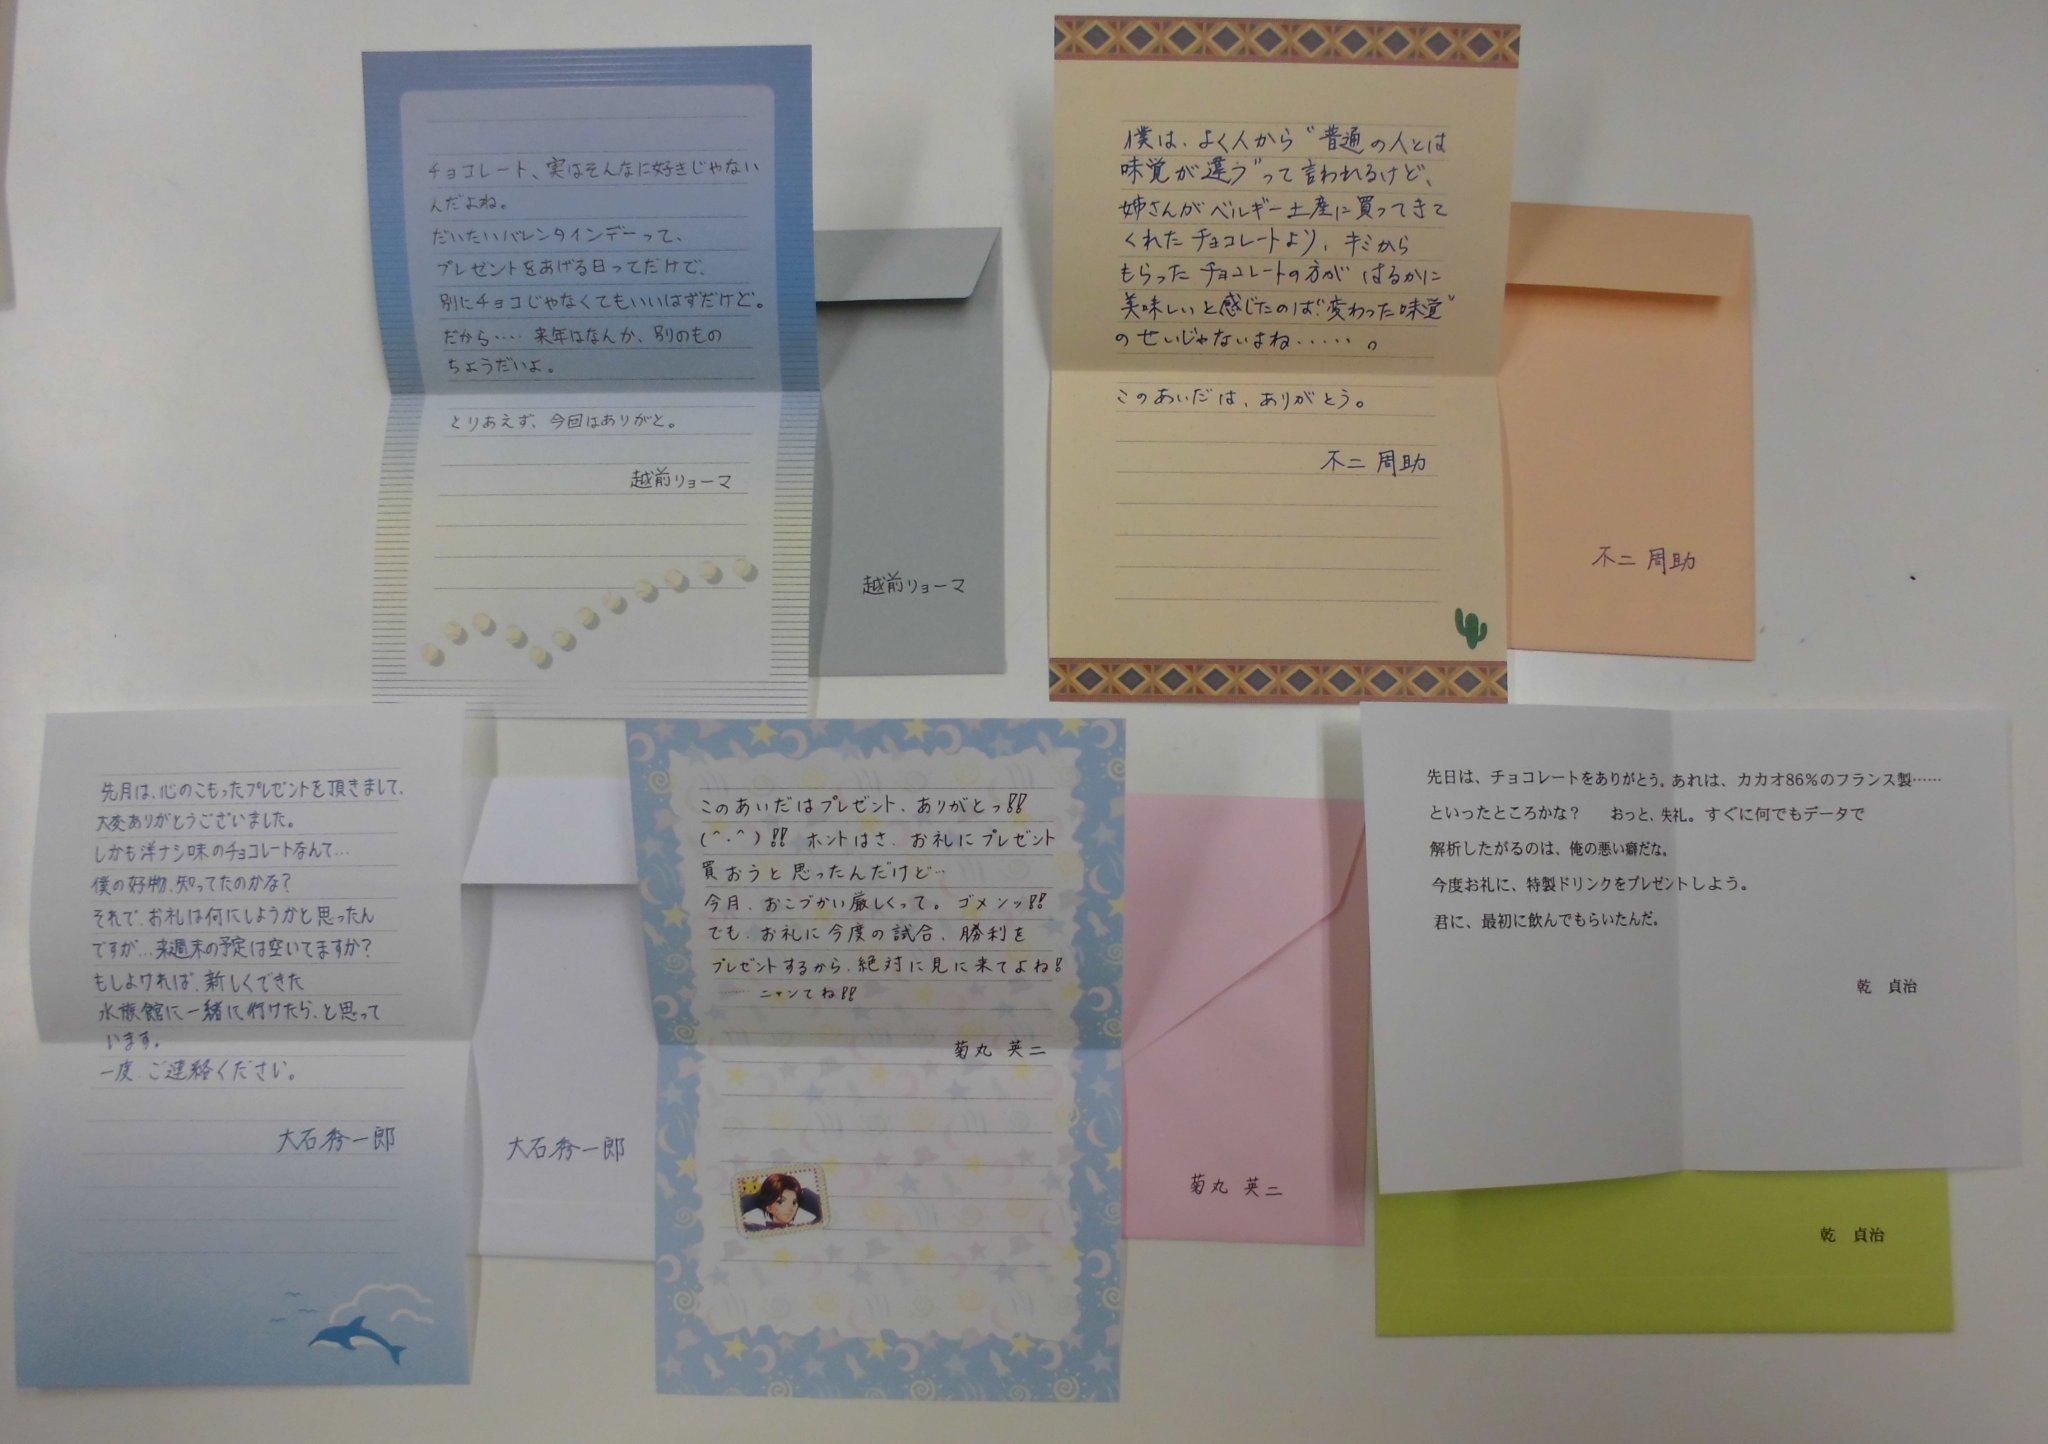 チョコレート、実はそんなに好きじゃない
んだよね。
だいたいバレンタインデーって、
プレゼントをあげる日ってだけで、
別にチョコじゃなくてもいいはずだけど。
だから‥‥ 来年はなんか、別のもの
ちょうだいよ。
とりあえず、今回はありがと。
越前リョーマ
越前リョーマ
僕は、よく人から〝普通の人とは
味覚が違う〟って言われるけど、
姉さんがベルギー土産に買ってきて
くれたチョコレートより、キミから
もらったチョコレートの方が はるかに
美味しいと感じたのは〝変わった味覚〟
のせいじゃないよね‥‥‥。
このあいだは、ありがとう。
不二 周助
不二 周助
先月は、心のこもったプレゼントを頂きまして、
大変ありがとうございました。
しかも洋ナシ味のチョコレートなんて…
僕の好物、知ってたのかな?
それで、お礼は何にしようかと思ったん
ですが…来週末の予定は空いてますか?
もしよければ、新しくできた
水族館に一緒に行けたら、と思って
います。
一度、ご連絡ください。
大石秀一郎
大石秀一郎
このあいだはプレゼント、ありがとっ!!
(^・^)!! ホントはさ、お礼にプレゼント
買おうと思ったんだけど…
今月、おこづかい厳しくって。ゴメンッ!!
でも、お礼に今度の試合、勝利を
プレゼントするから、絶対に見に来てよね!
……ニャンてね!!
菊丸 英二
菊丸 英二
先日は、チョコレートをありがとう。あれは、カカオ86%のフランス製……
といったところかな? おっと、失礼。すぐに何でもデータで
解析したがるのは、俺の悪い癖だな。
今度お礼に、特製ドリンクをプレゼントしよう。
君に、最初に飲んでもらいたんだ。
乾 貞治
乾 貞治